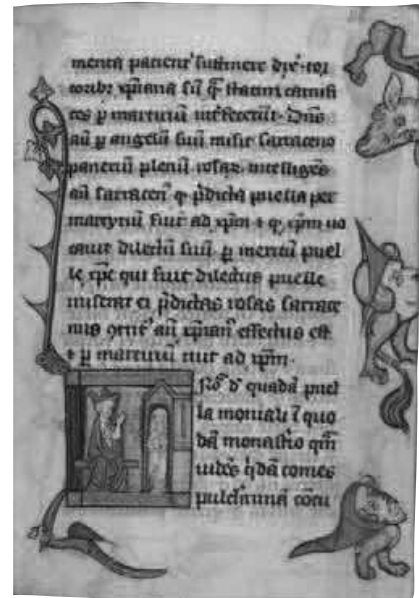 menta pacient᷒ sustinere
toribꝫ xp̄iana
ces ꝑ martiriū int᷒fecerūt. Dn̄s
aū ꝑ angelū suū misit sarraceno
paneriū plenū rosaꝝ. intelligēs
aū sarracen᷒ ꝙ p̄dicta puella per
martyriū fuit ad xp̄m ⁊ ꝙ xp̄m uo
cauit dilectū suū ꝑ meritū puel
le xp̄c qui fuit dilectus puelle
miserat ei p̄dictas rosas sarrace
nus aū xp̄ian᷒ effectus est
⁊ ꝑ martiriū iuit ad xp̄m.
d᷒ quadā puel
la moniali ī quo
dā monast᷒io qm̄
uidēs q̇dā comes
pulcherrimā